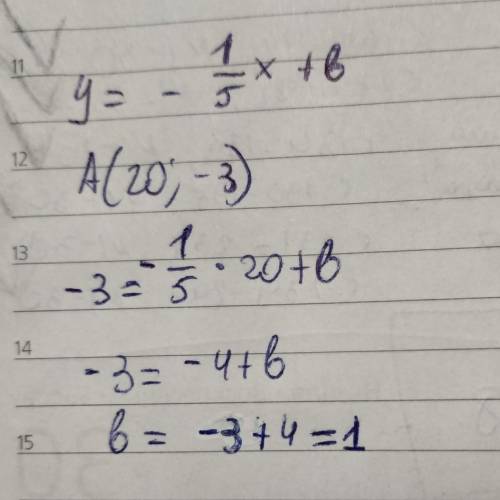 11
y = - 1/5 x + b
12
A(20; -3)
13
-3 = - 1/5 · 20 + b
14
-3 = -4 + b
15
b = -3 + 4 = 1